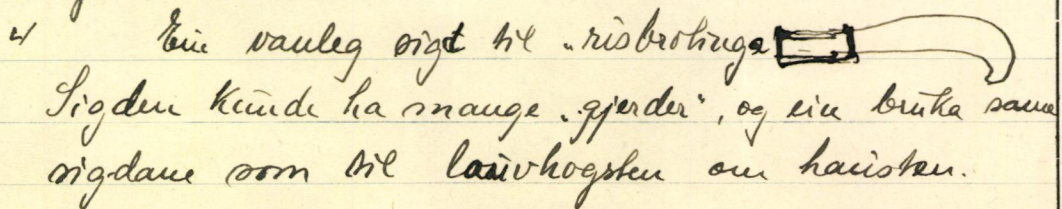 4) Ein vanleg sigt til „risbrotinga
Sigden kunde ha mange „gjerder", og ein bruka same
sigdane som til lauvhogsten om hausten.